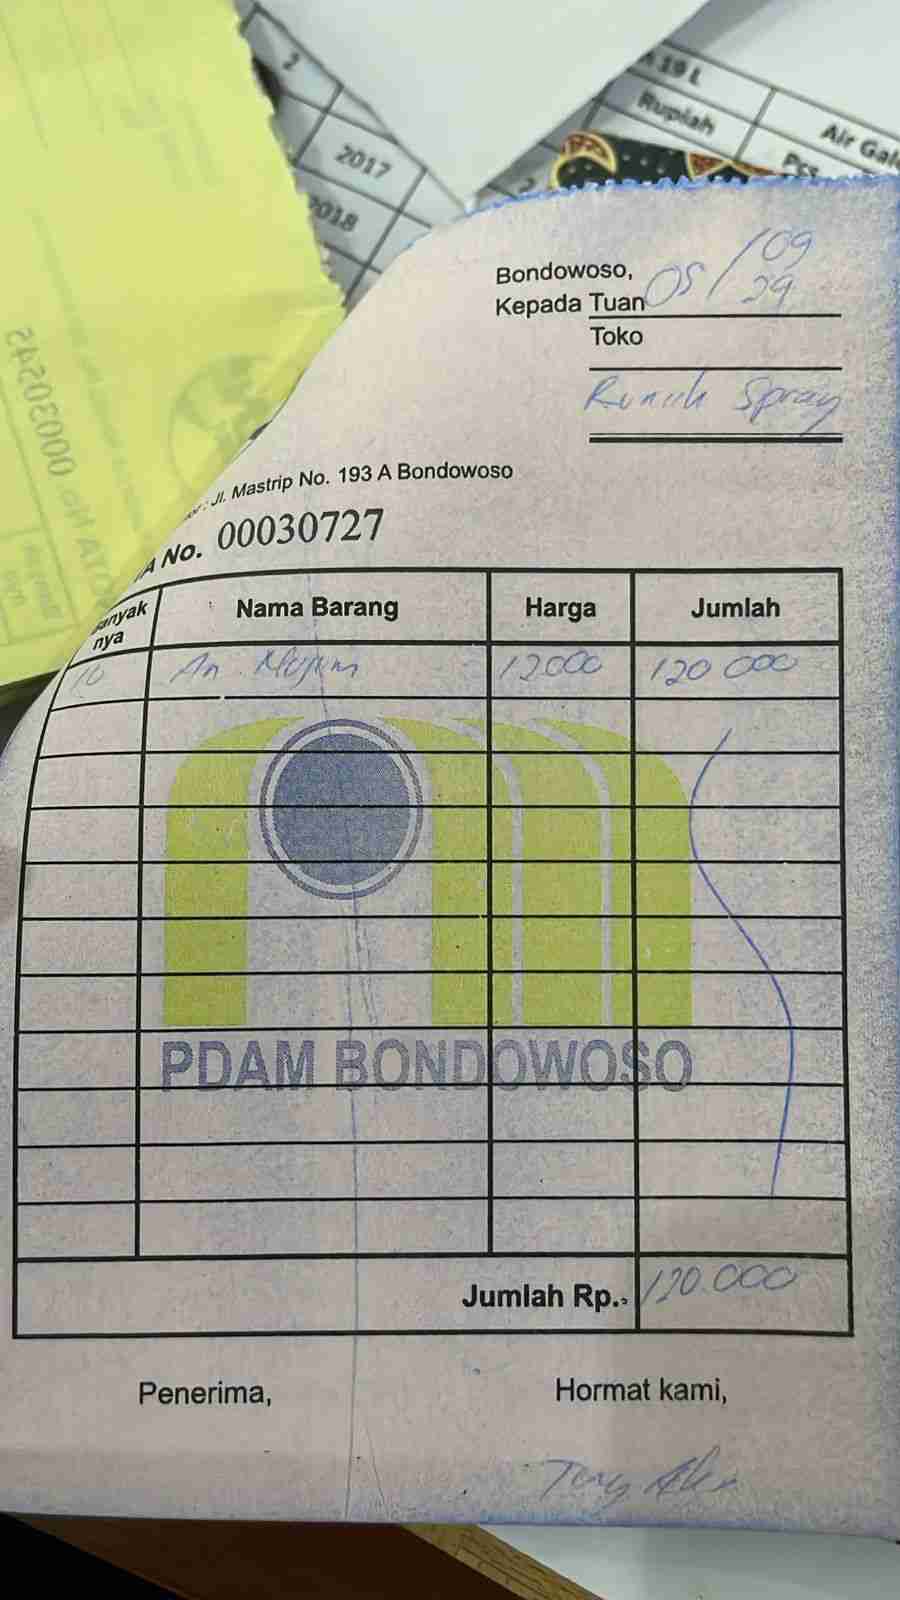 2
2017
2018
19 L
Rupiah
Air Gal
Pcs
00030545
Bondowoso, 05/09
Kepada Tuan 29
Toko
Spray
Jl. Mastrip No. 193 A Bondowoso
A No. 00030727
anyak nya Nama Barang Harga Jumlah
10 12000 120 000
PDAM BONDOWOSO
Jumlah Rp., 120.000
Penerima, Hormat kami,